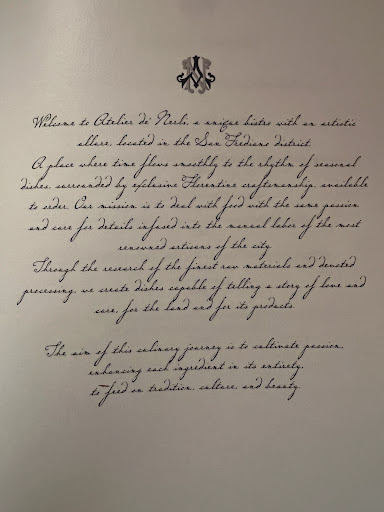 Welcome to Atelier de' Nerli, a unique bistro with an artistic
allure, located in the San Frediano district.
A place where time flows smoothly to the rhythm of seasonal
dishes, surrounded by exclusive Florentine craftsmanship, available
to order. Our mission is to deal with food with the same passion
and care for details infused into the manual labor of the most
renowned artisans of the city.
Through the research of the finest raw materials and devoted
processing, we create dishes capable of telling a story of love and
care, for the land and for its products.
The aim of this culinary journey is to cultivate passion,
enhancing each ingredient in its entirety,
to feed on tradition, culture, and beauty.